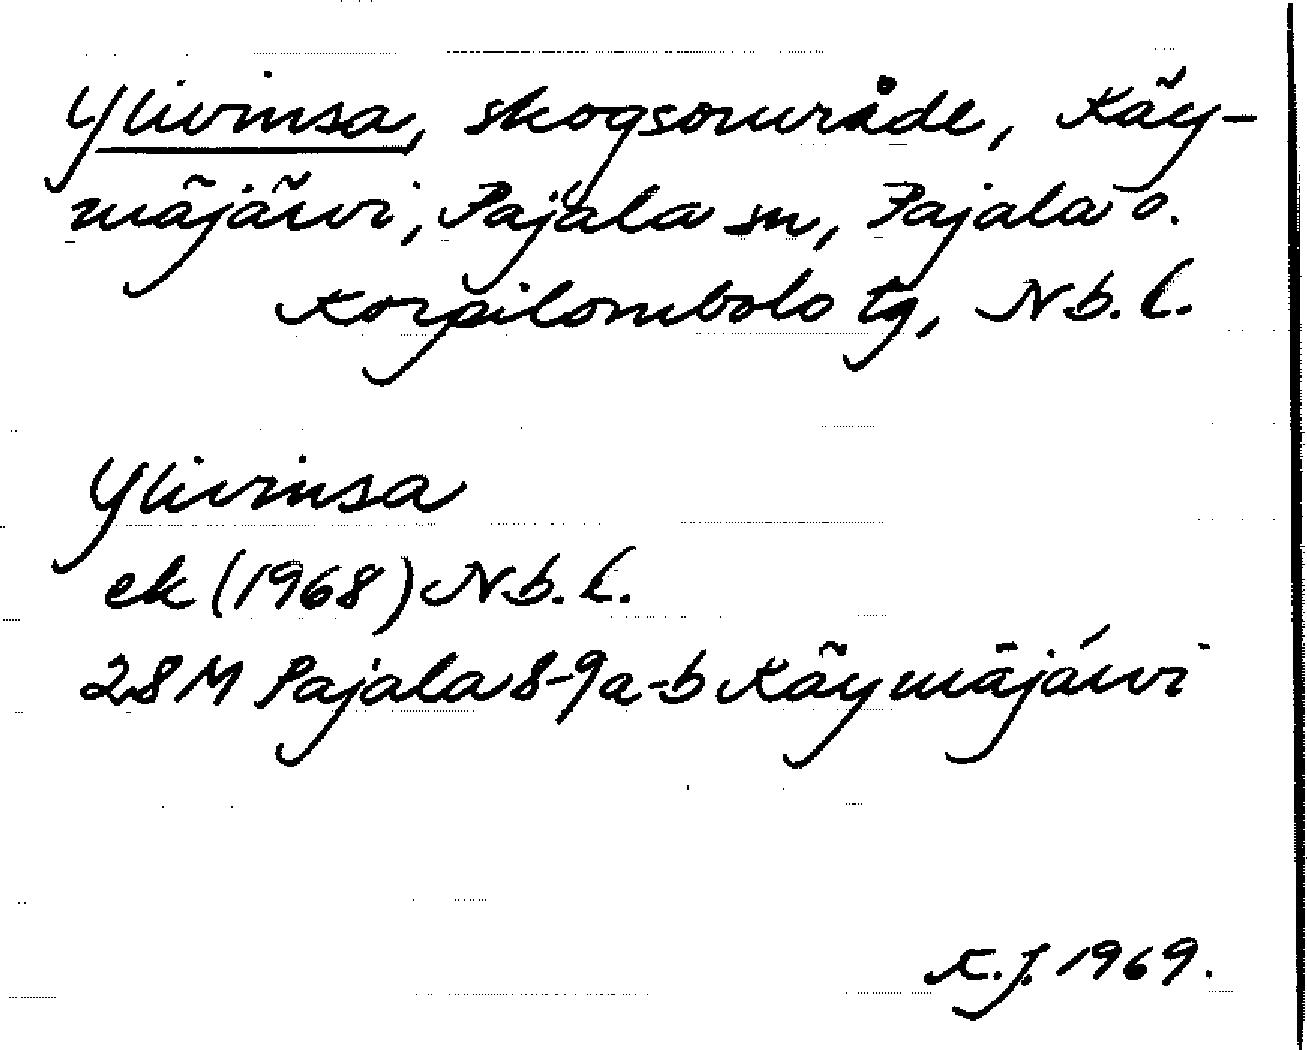 Ylivinsa, skogsområde, Käy-
mäjärvi, Pajala sn, Pajala o.
Korpilombolo tg, Nb. l.
Ylivinsa
ek (1968) Nb. l.
28M Pajala 8-9a-b Käymäjärvi
K.J. 1969.